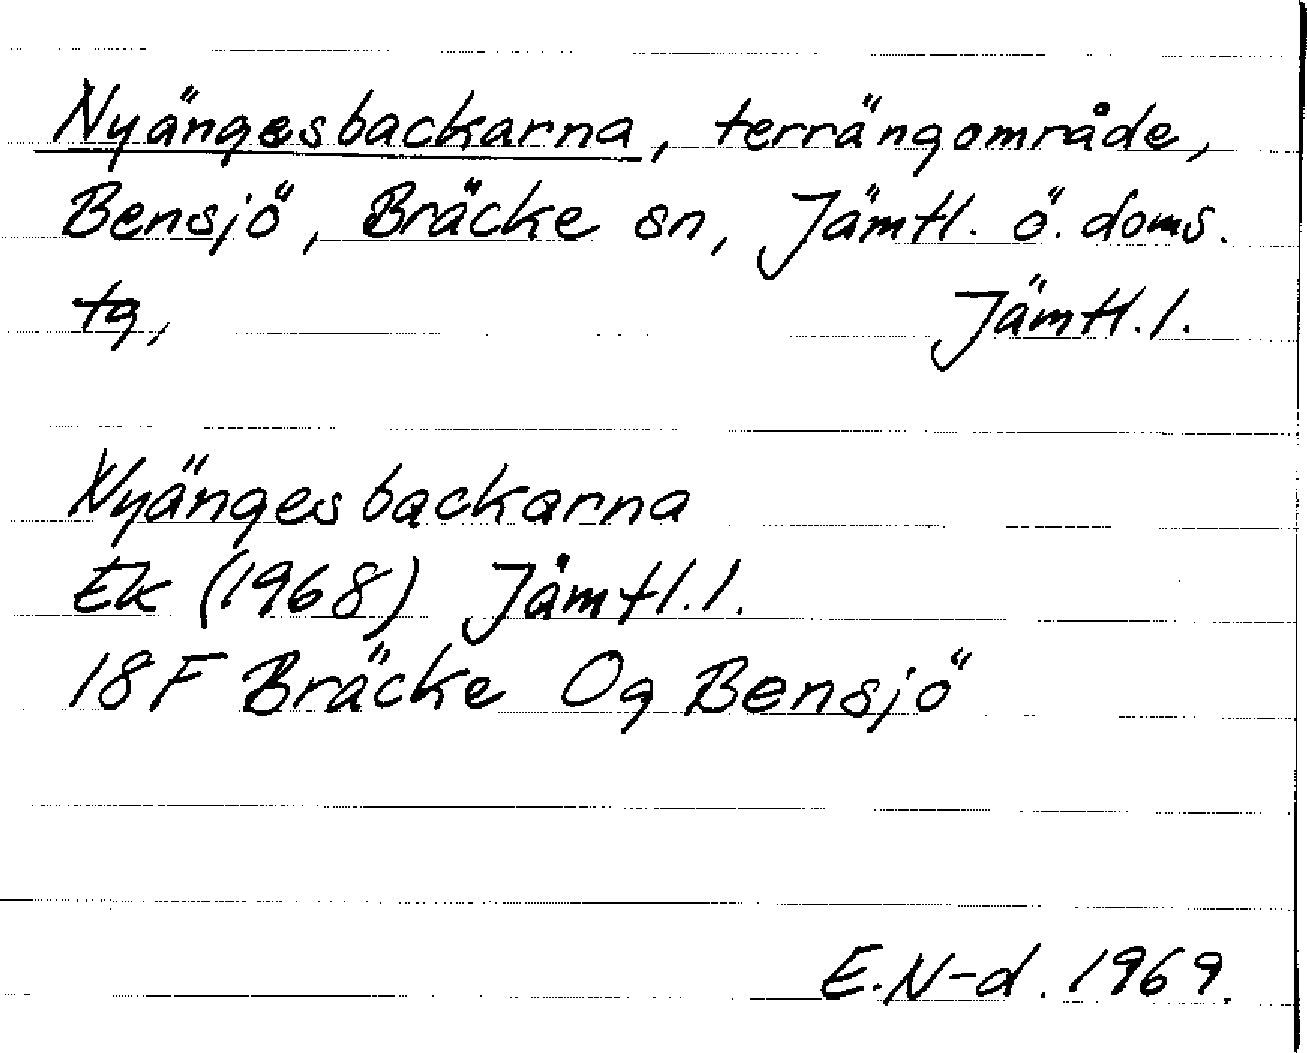 Nyängesbackarna, terrängområde,
Bensjö, Bräcke sn, Jämtl. ö. doms.
tg, Jämtl.l.
Nyängesbackarna
Ek (1968) Jämtl.l.
18F Bräcke Og Bensjö
E.N-d. 1969.